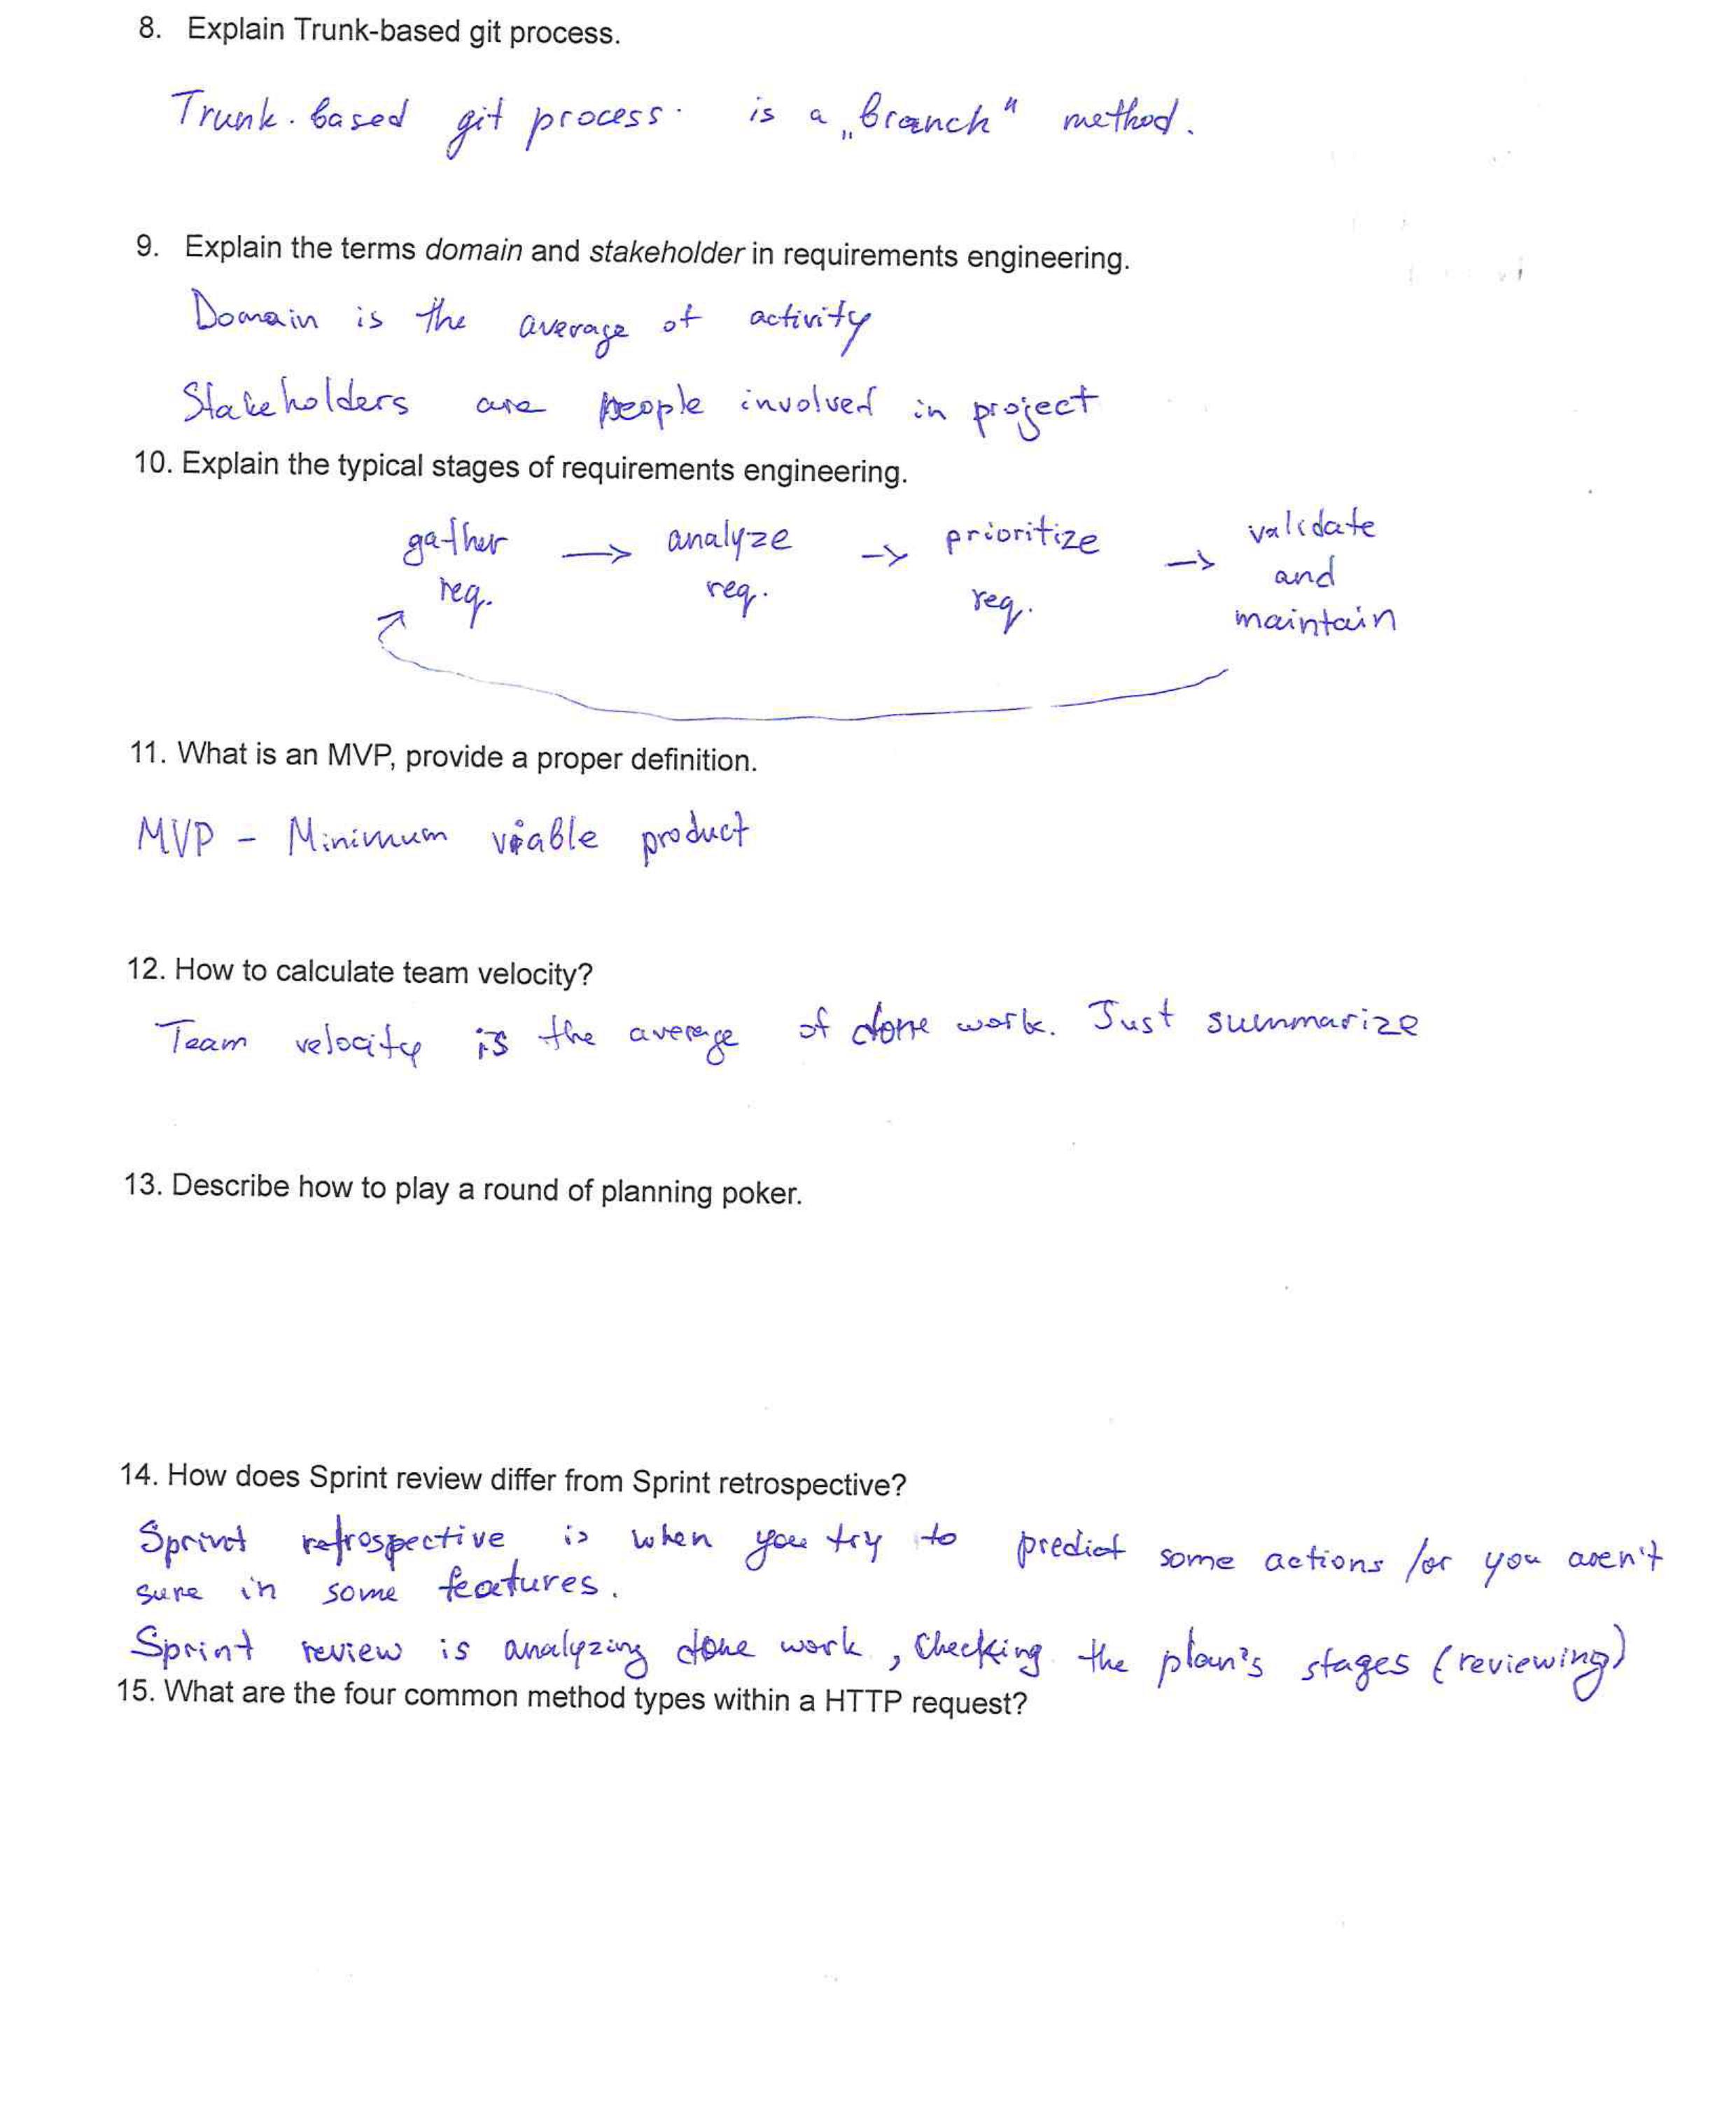 8. Explain Trunk-based git process.
Trunk. based git process. is a „branch" method.
9. Explain the terms domain and stakeholder in requirements engineering.
Domain is the average of activity
Stakeholders are people involved in project
10. Explain the typical stages of requirements engineering.
gather → analyze → prioritize → validate
req. req. req. and
maintain
11. What is an MVP, provide a proper definition.
MVP - Minimum viable product
12. How to calculate team velocity?
Team velocity is the average of done work. Just summarize
13. Describe how to play a round of planning poker.
14. How does Sprint review differ from Sprint retrospective?
Sprint retrospective is when you try to predict some actions /or you aren't
sure in some features.
Sprint review is analyzing done work, checking the plan's stages (reviewing)
15. What are the four common method types within a HTTP request?